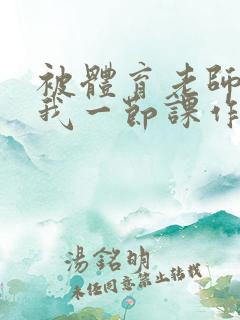 被體育老師
我一節課作
湯銘明
未任同意禁止转载